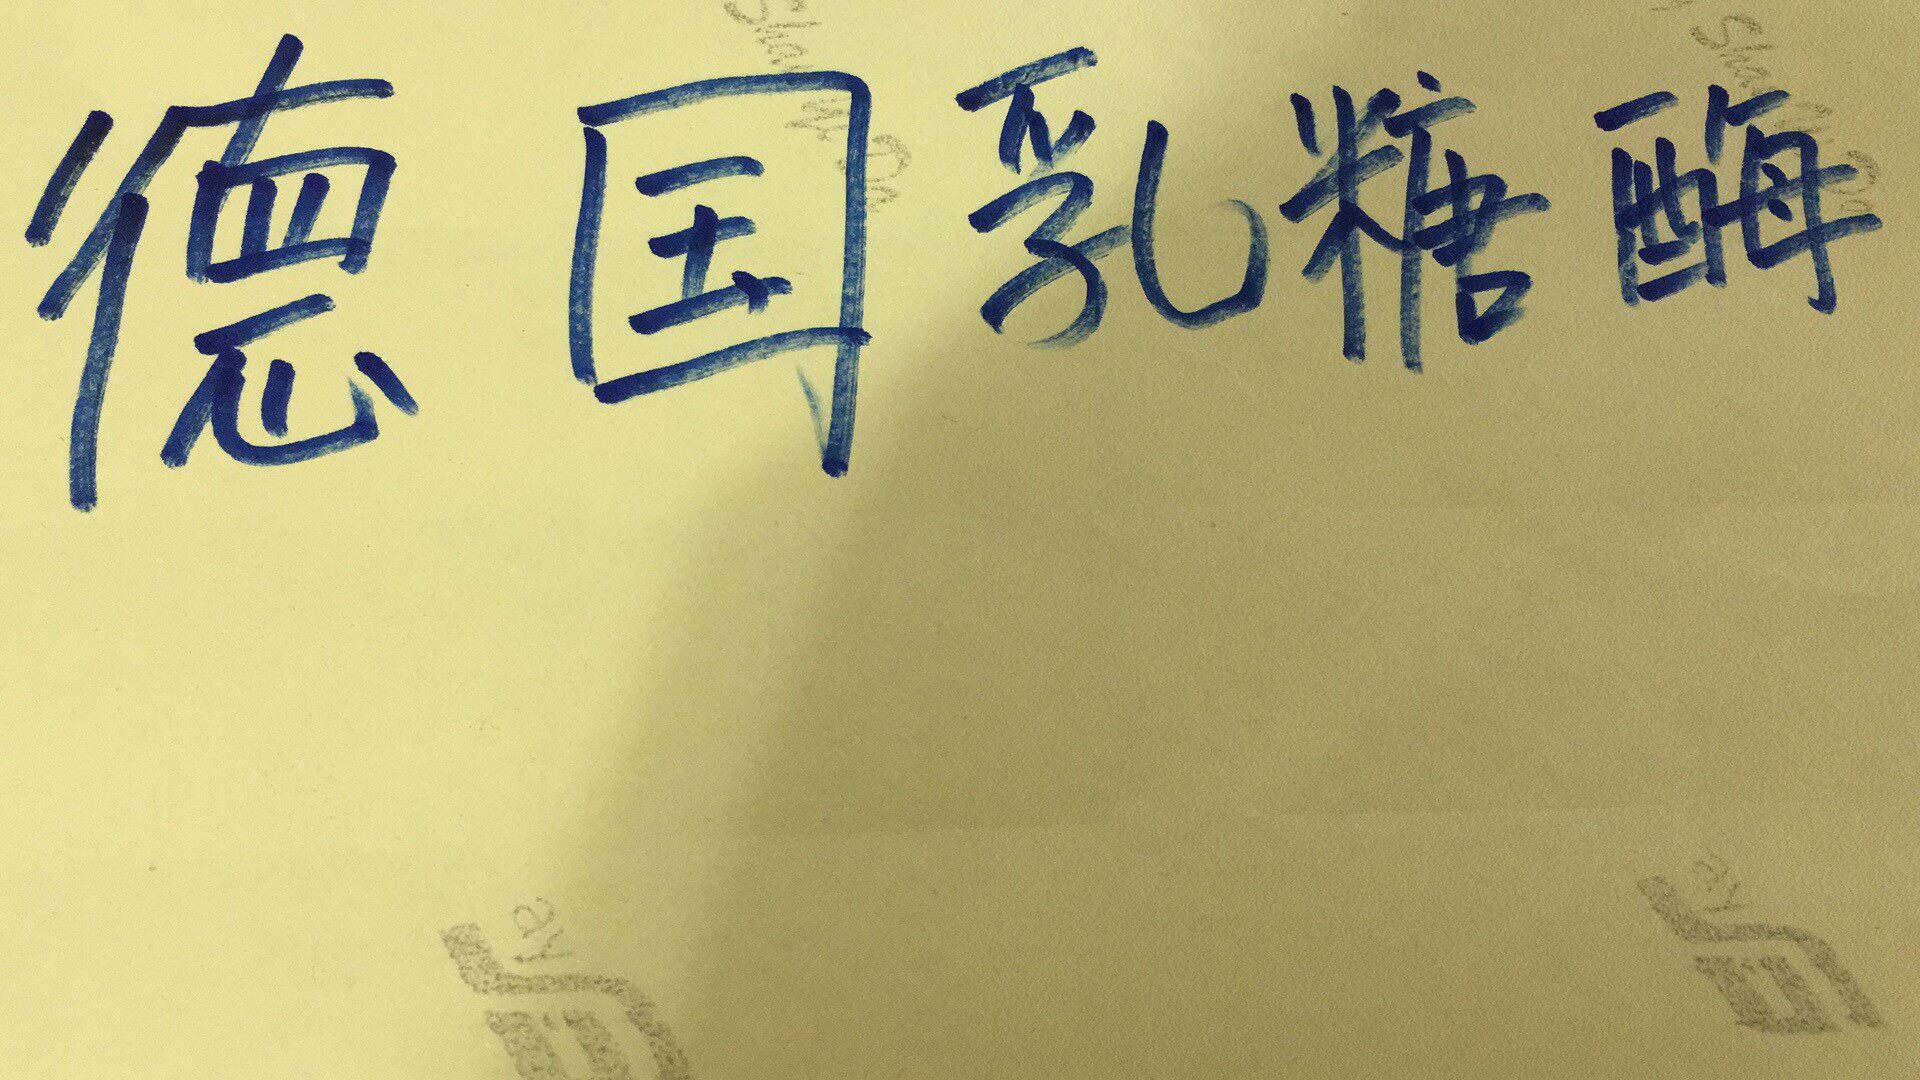 德国乳糖酶